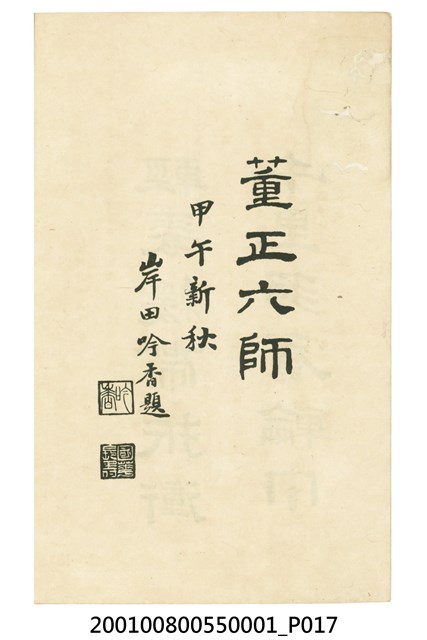 董正六師
甲午新秋
岸田吟香題
吟香
200100800550001_P017